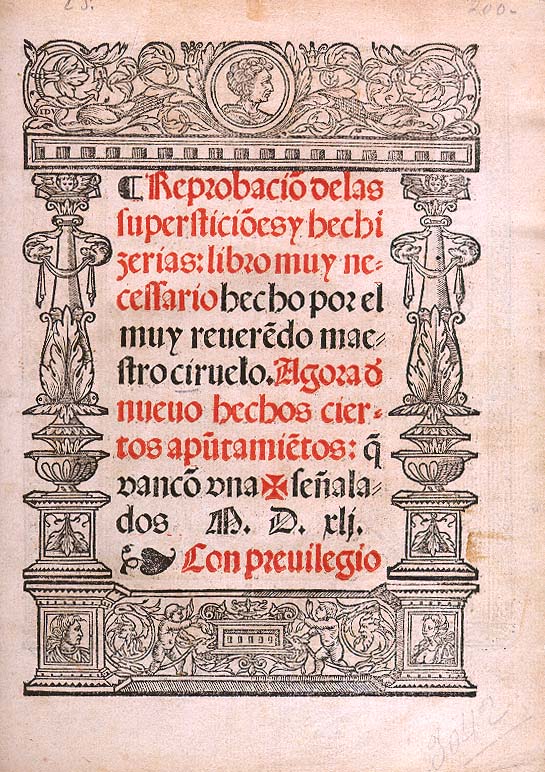 200.
¶ Reprobaciō delas
supersticiōes y hechi
zerias: libro muy ne⸗
cessario hecho por el
muy reuerēdo mae⸗
stro ciruelo. Agora đ
nueuo hechos cier⸗
tos apūtamiētos: q̄
van cō vna ✠ señala⸗
dos M. D. xlj.
❧ Con preuilegio